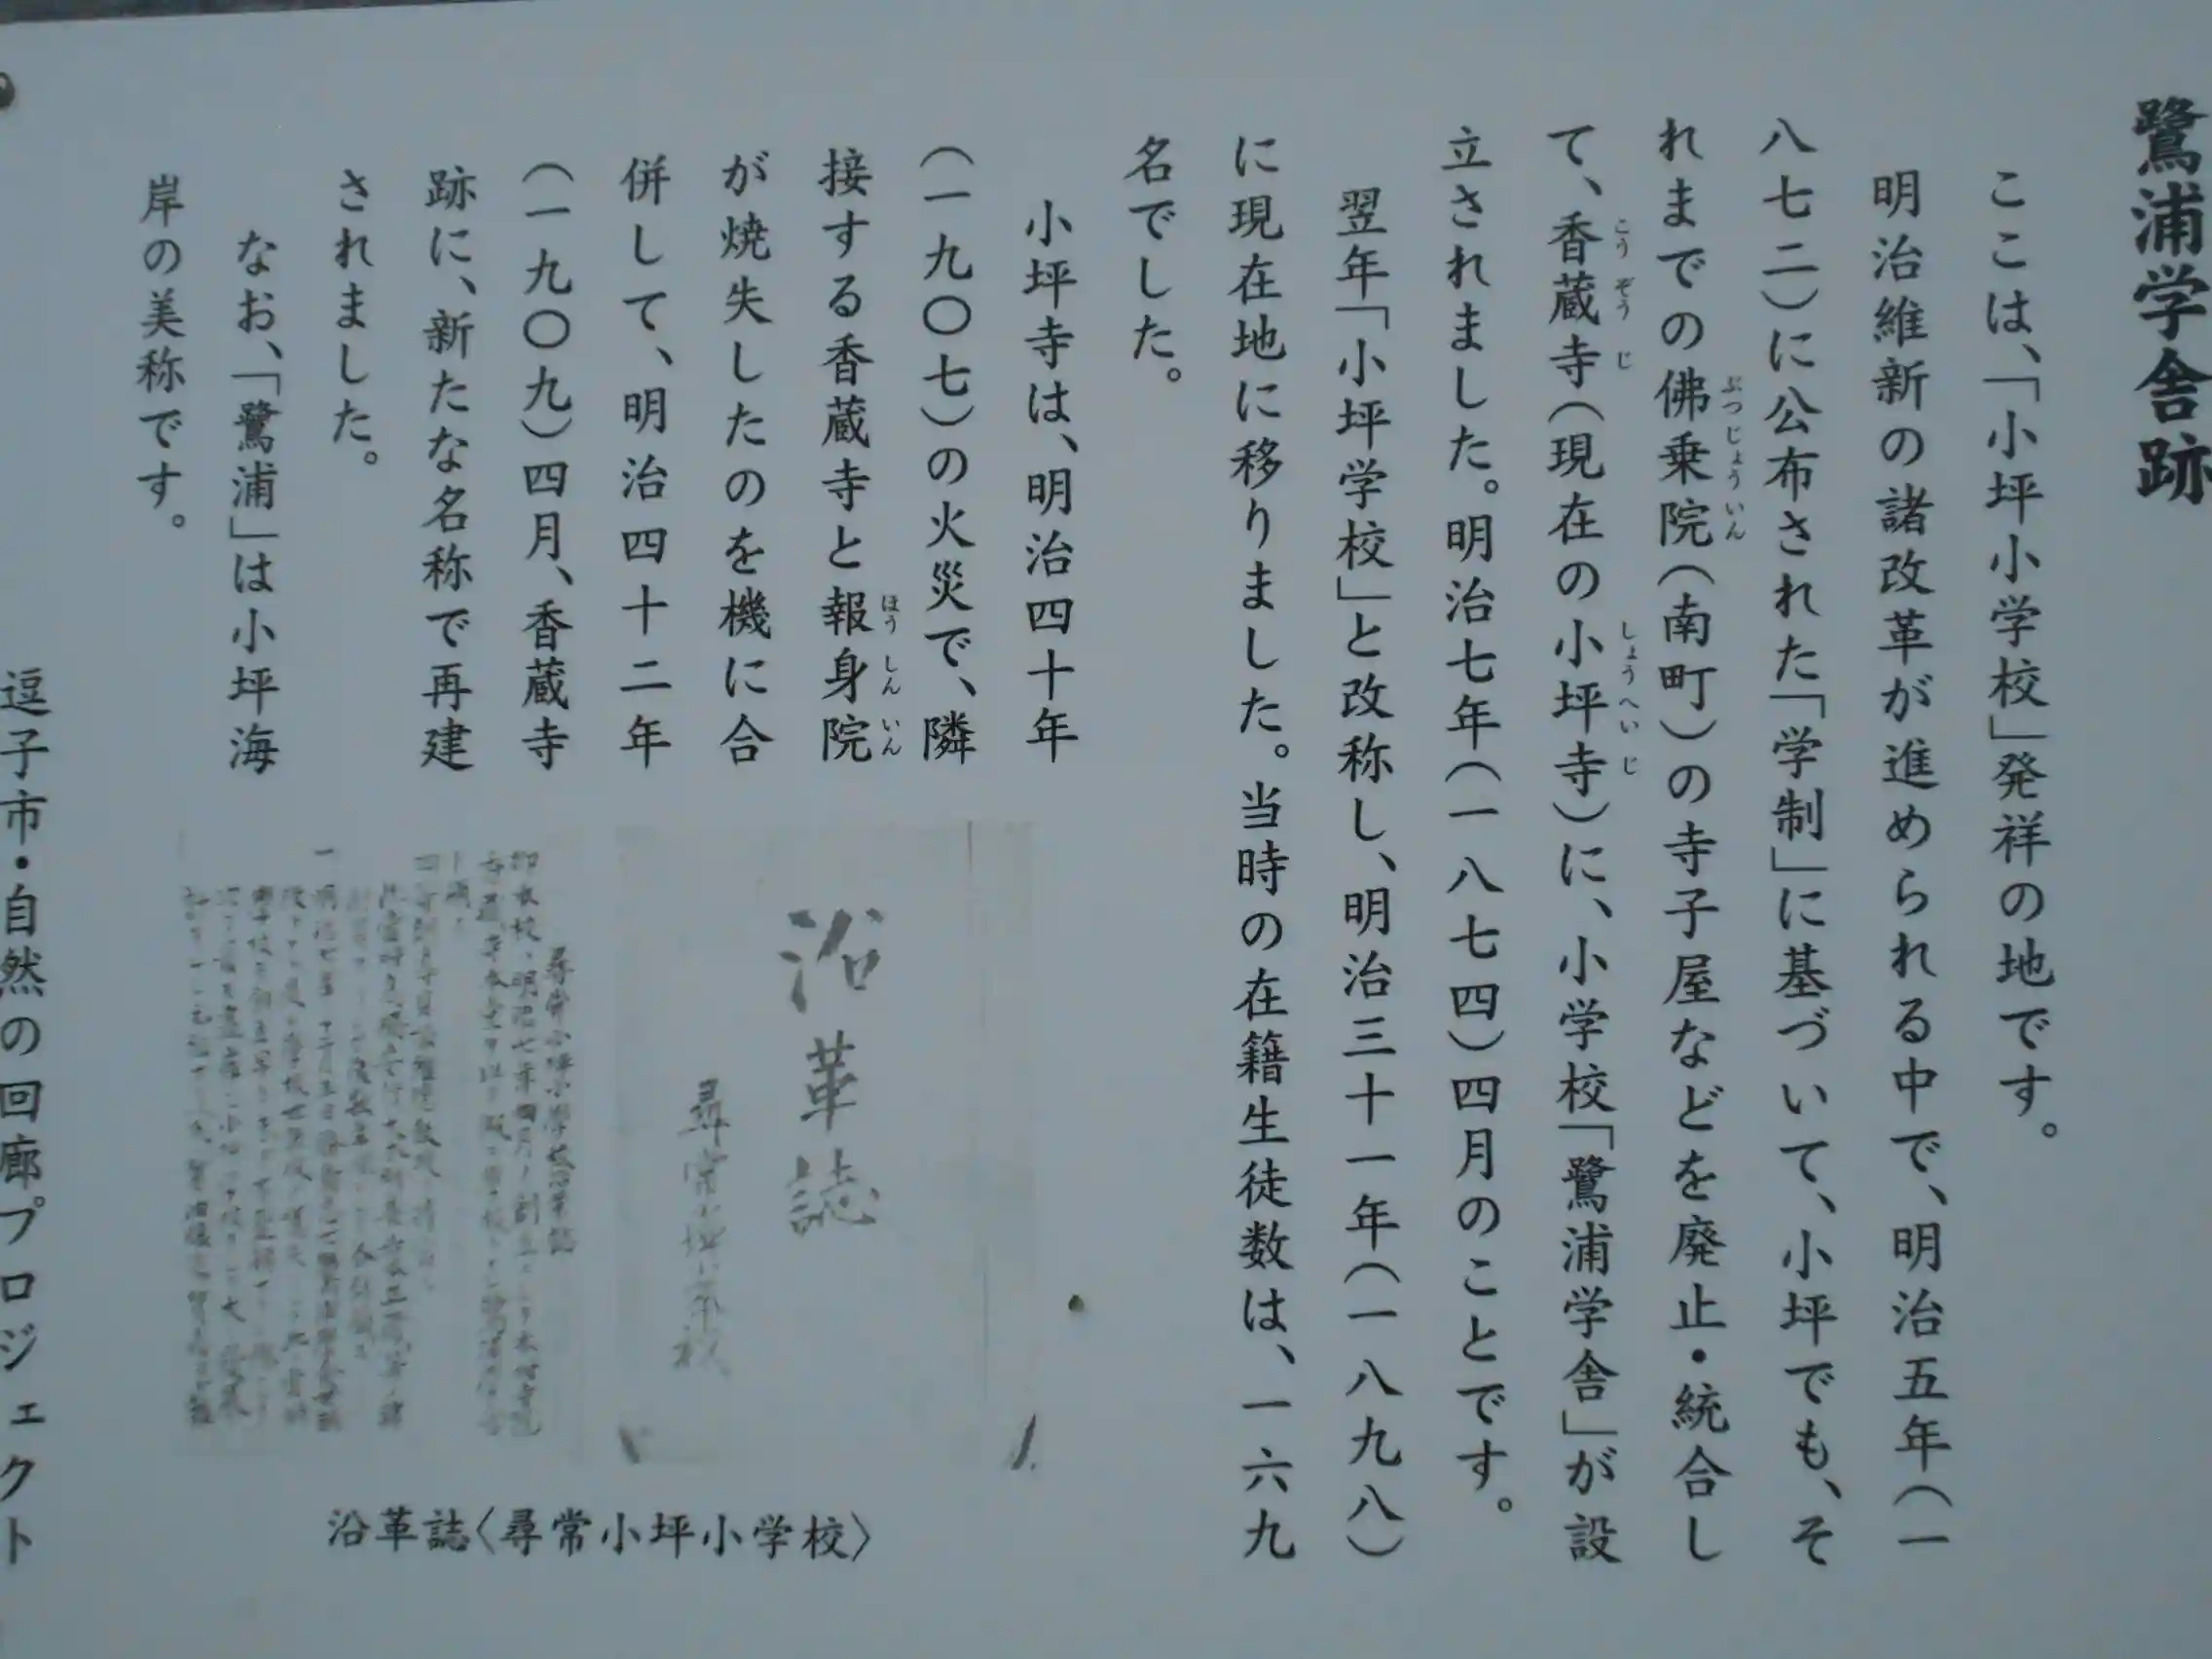 鷺浦学舎跡
ここは、「小坪小学校」発祥の地です。
明治維新の諸改革が進められる中で、明治五年(一
八七二)に公布された「学制」に基づいて、小坪でも、そ
れまでの佛乗院(南町)の寺子屋などを廃止・統合し
ぶつじょういん
て、香蔵寺(現在の小坪寺)に、小学校「鷺浦学舎」が設
こうぞうじ しょうへいじ
立されました。明治七年(一八七四)四月のことです。
翌年「小坪学校」と改称し、明治三十一年(一八九八)
に現在地に移りました。当時の在籍生徒数は、一六九
名でした。
小坪寺は、明治四十年
(一九〇七)の火災で、隣
接する香蔵寺と報身院
ほうしんいん
が焼失したのを機に合
併して、明治四十二年
(一九〇九)四月、香蔵寺
跡に、新たな名称で再建
されました。
なお、「鷺浦」は小坪海
岸の美称です。
沿革誌
尋常小坪小学校
尋常小坪小学校沿革誌
沿革誌〈尋常小坪小学校〉
逗子市・自然の回廊プロジェクト